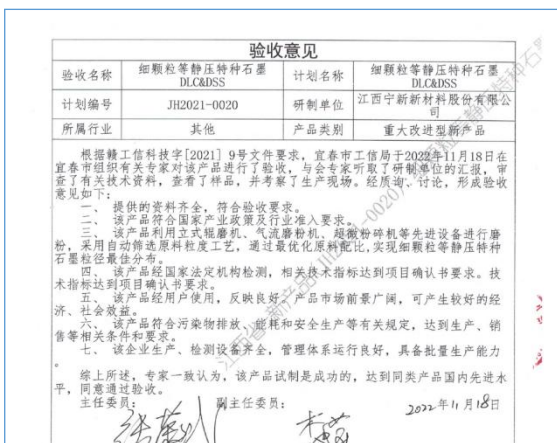 验收意见
验收名称 细颗粒等静压特种石墨 计划名称 细颗粒等静压特种石墨
DLC&DSS DLC&DSS
计划编号 JH2021-0020 研制单位 江西宁新新材料股份有限公
司
所属行业 其他 产品类别 重大改进型新产品
根据赣工信科技字[2021] 9号文件要求，宜春市工信局于2022年11月18日在
宜春市组织有关专家对该产品进行了验收，与会专家听取了研制单位的汇报，审
查了有关技术资料，查看了样品，并考察了生产现场。经质询、讨论，形成验收
意见如下：
一、 提供的资料齐全，符合验收要求。
二、 该产品符合国家产业政策及行业准入要求。
三、 该产品利用立式辊磨机、气流磨粉机、超微粉碎机等先进设备进行磨
粉，采用自动筛选原料粒度工艺，通过最优化原料配比，实现细颗粒等静压特种
石墨粒径最佳分布。
四、 该产品经国家法定机构检测，相关技术指标达到项目确认书要求。技
术指标达到项目确认书要求。
五、 该产品经用户使用，反映良好，产品市场前景广阔，可产生较好的经
济、社会效益。
六、 该产品符合污染物排放、能耗和安全生产等有关规定，达到生产、销
售等相关条件和要求。
七、 该企业生产、检测设备齐全，管理体系运行良好，具备批量生产能力
。
综上所述，专家一致认为，该产品试制是成功的，达到同类产品国内先进水
平，同意通过验收。
主任委员： 副主任委员： 2022年11月18日